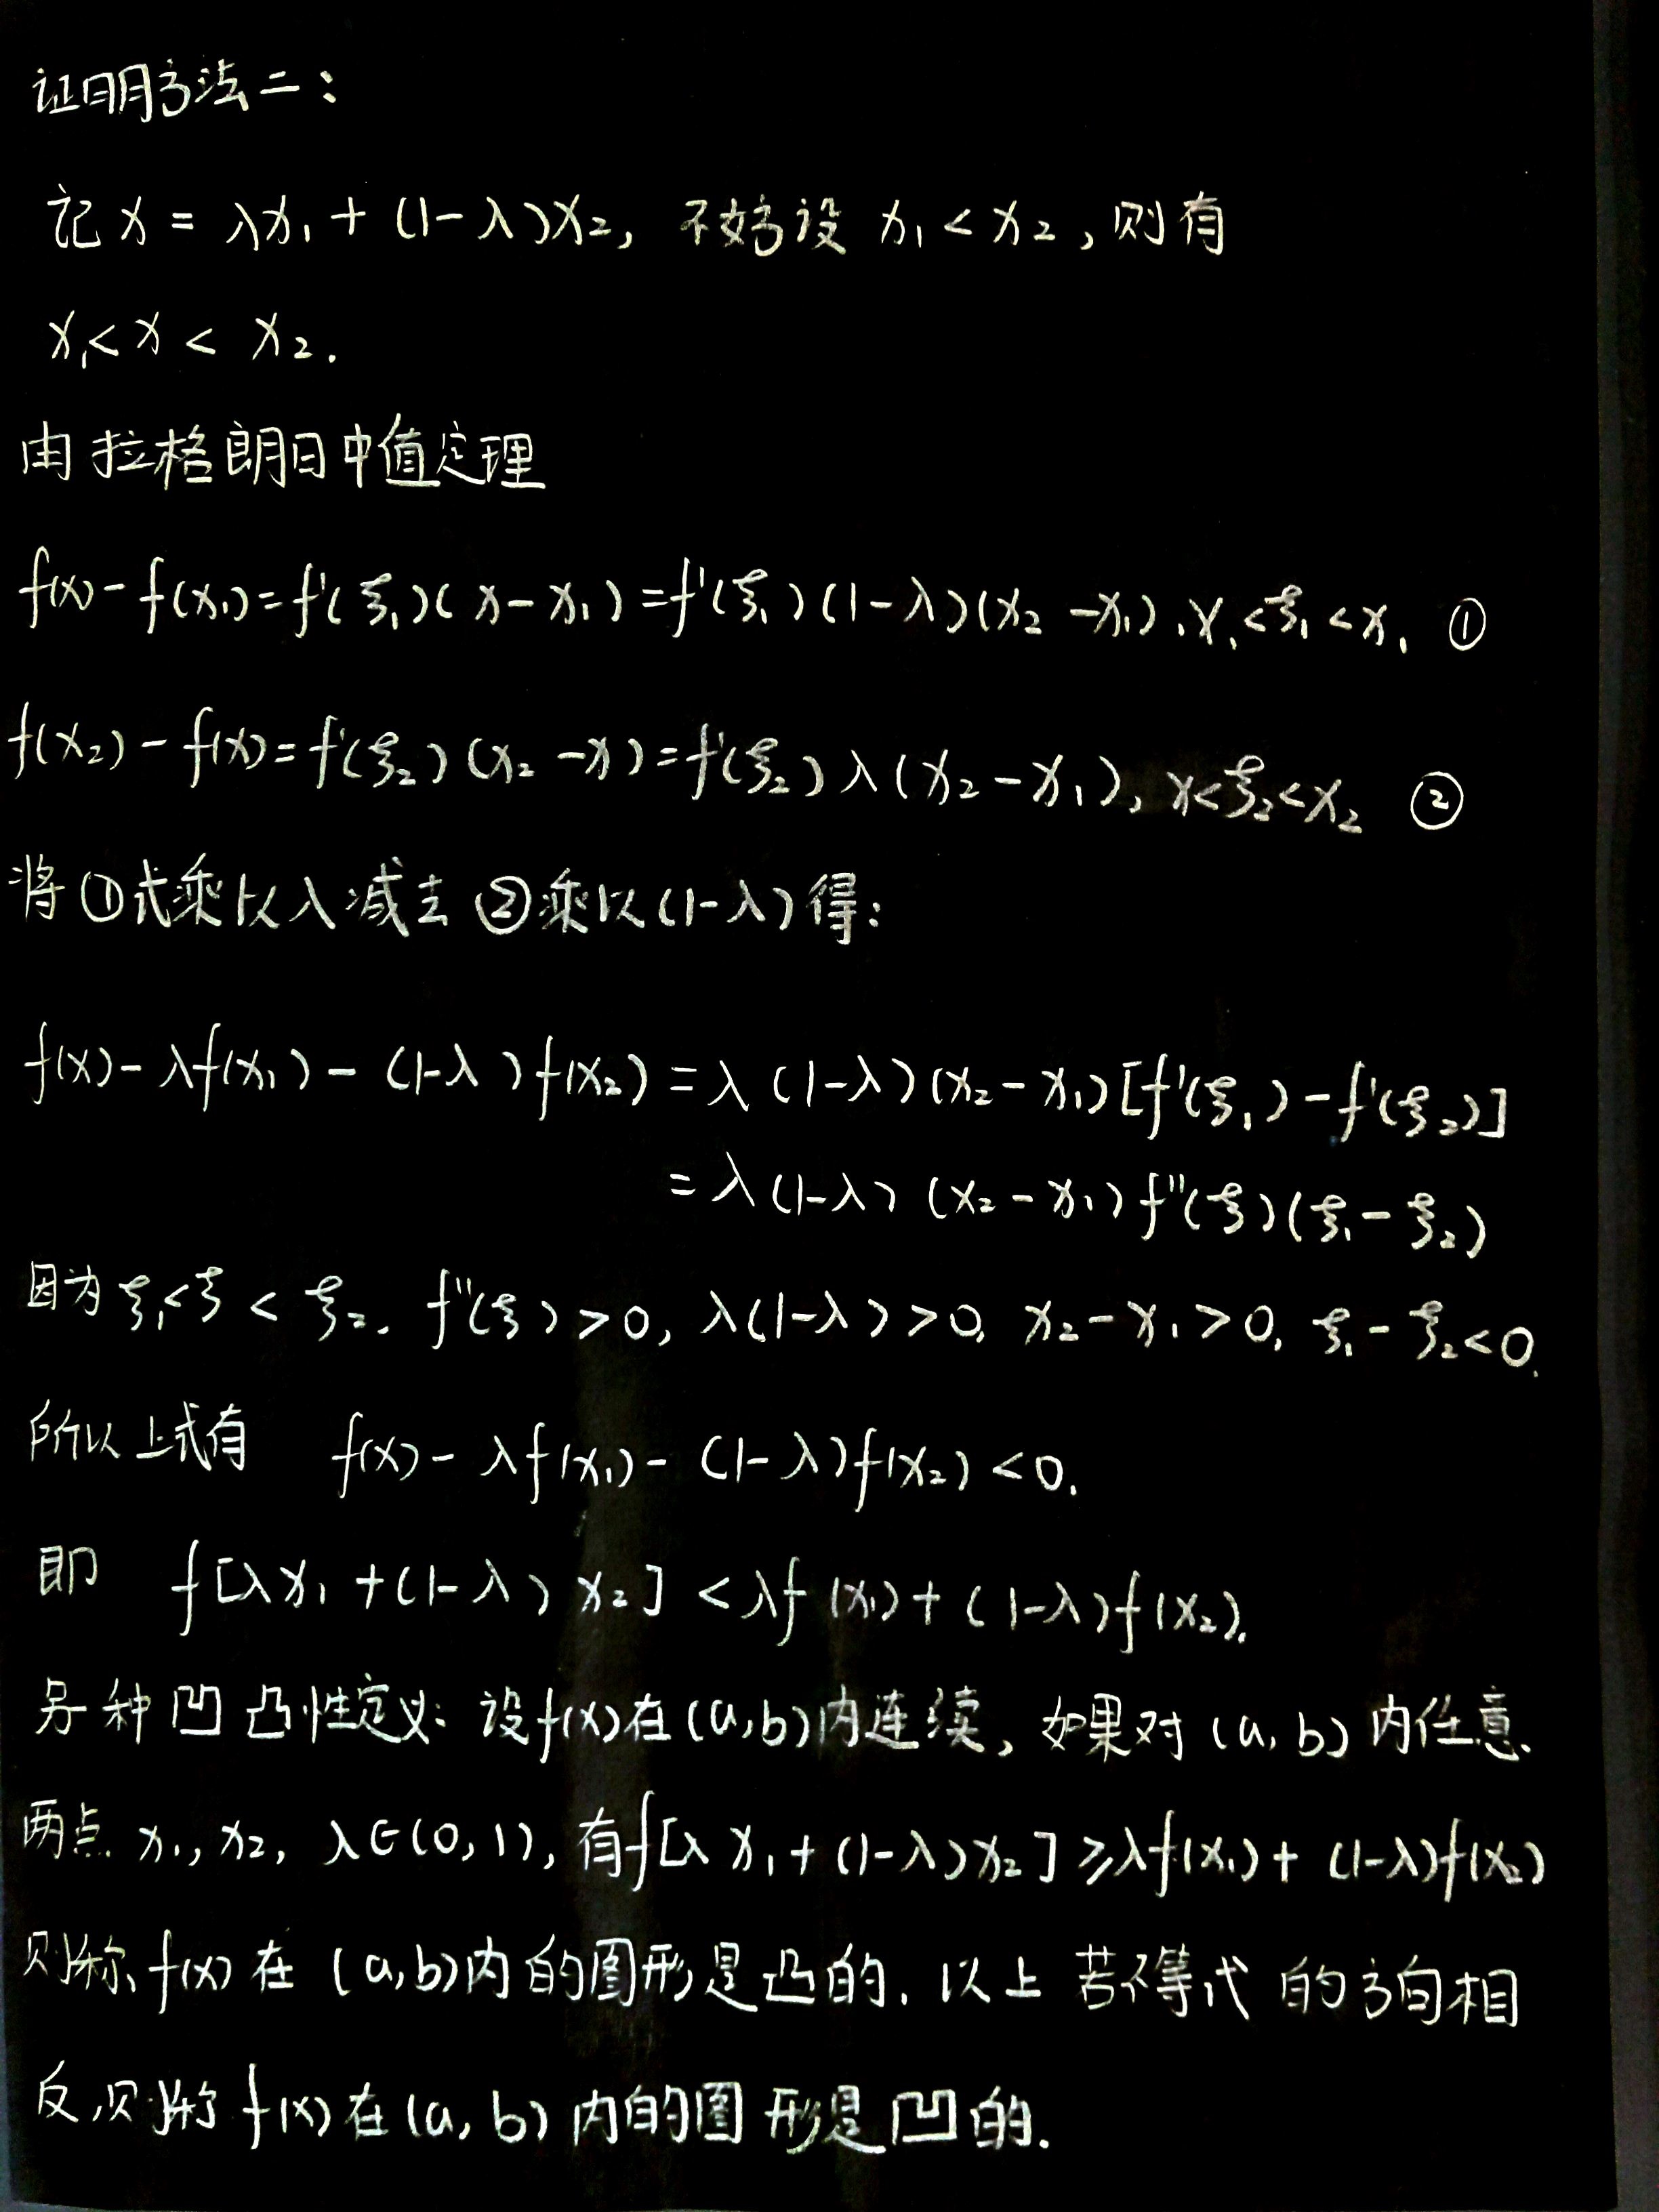 证明方法二：
记 x = λx₁ + (1-λ)x₂, 不妨设 x₁ < x₂, 则有
x₁< x < x₂.
由拉格朗日中值定理
f(x) - f(x₁) = f'(ξ₁)(x - x₁) = f'(ξ₁)(1-λ)(x₂ - x₁), x₁<ξ₁<x, ①
f(x₂) - f(x) = f'(ξ₂)(x₂ - x) = f'(ξ₂)λ(x₂ - x₁), x<ξ₂<x₂ ②
将①式乘以λ减去②乘以(1-λ)得:
f(x) - λf(x₁) - (1-λ)f(x₂) = λ(1-λ)(x₂ - x₁)[f'(ξ₁) - f'(ξ₂)]
= λ(1-λ)(x₂ - x₁)f''(ξ)(ξ₁ - ξ₂)
因为 ξ₁<ξ<ξ₂. f''(ξ) > 0, λ(1-λ) > 0, x₂ - x₁ > 0, ξ₁ - ξ₂ < 0.
所以上式有 f(x) - λf(x₁) - (1-λ)f(x₂) < 0.
即 f[λx₁ + (1-λ)x₂] < λf(x₁) + (1-λ)f(x₂).
另种凹凸性定义: 设f(x)在(a,b)内连续, 如果对(a,b)内任意
两点 x₁, x₂, λ∈(0,1), 有f[λx₁ + (1-λ)x₂] ≥ λf(x₁) + (1-λ)f(x₂)
则称f(x)在(a,b)内的图形是凸的. 以上若不等式的方向相
反,则称f(x)在(a,b)内的图形是凹的.